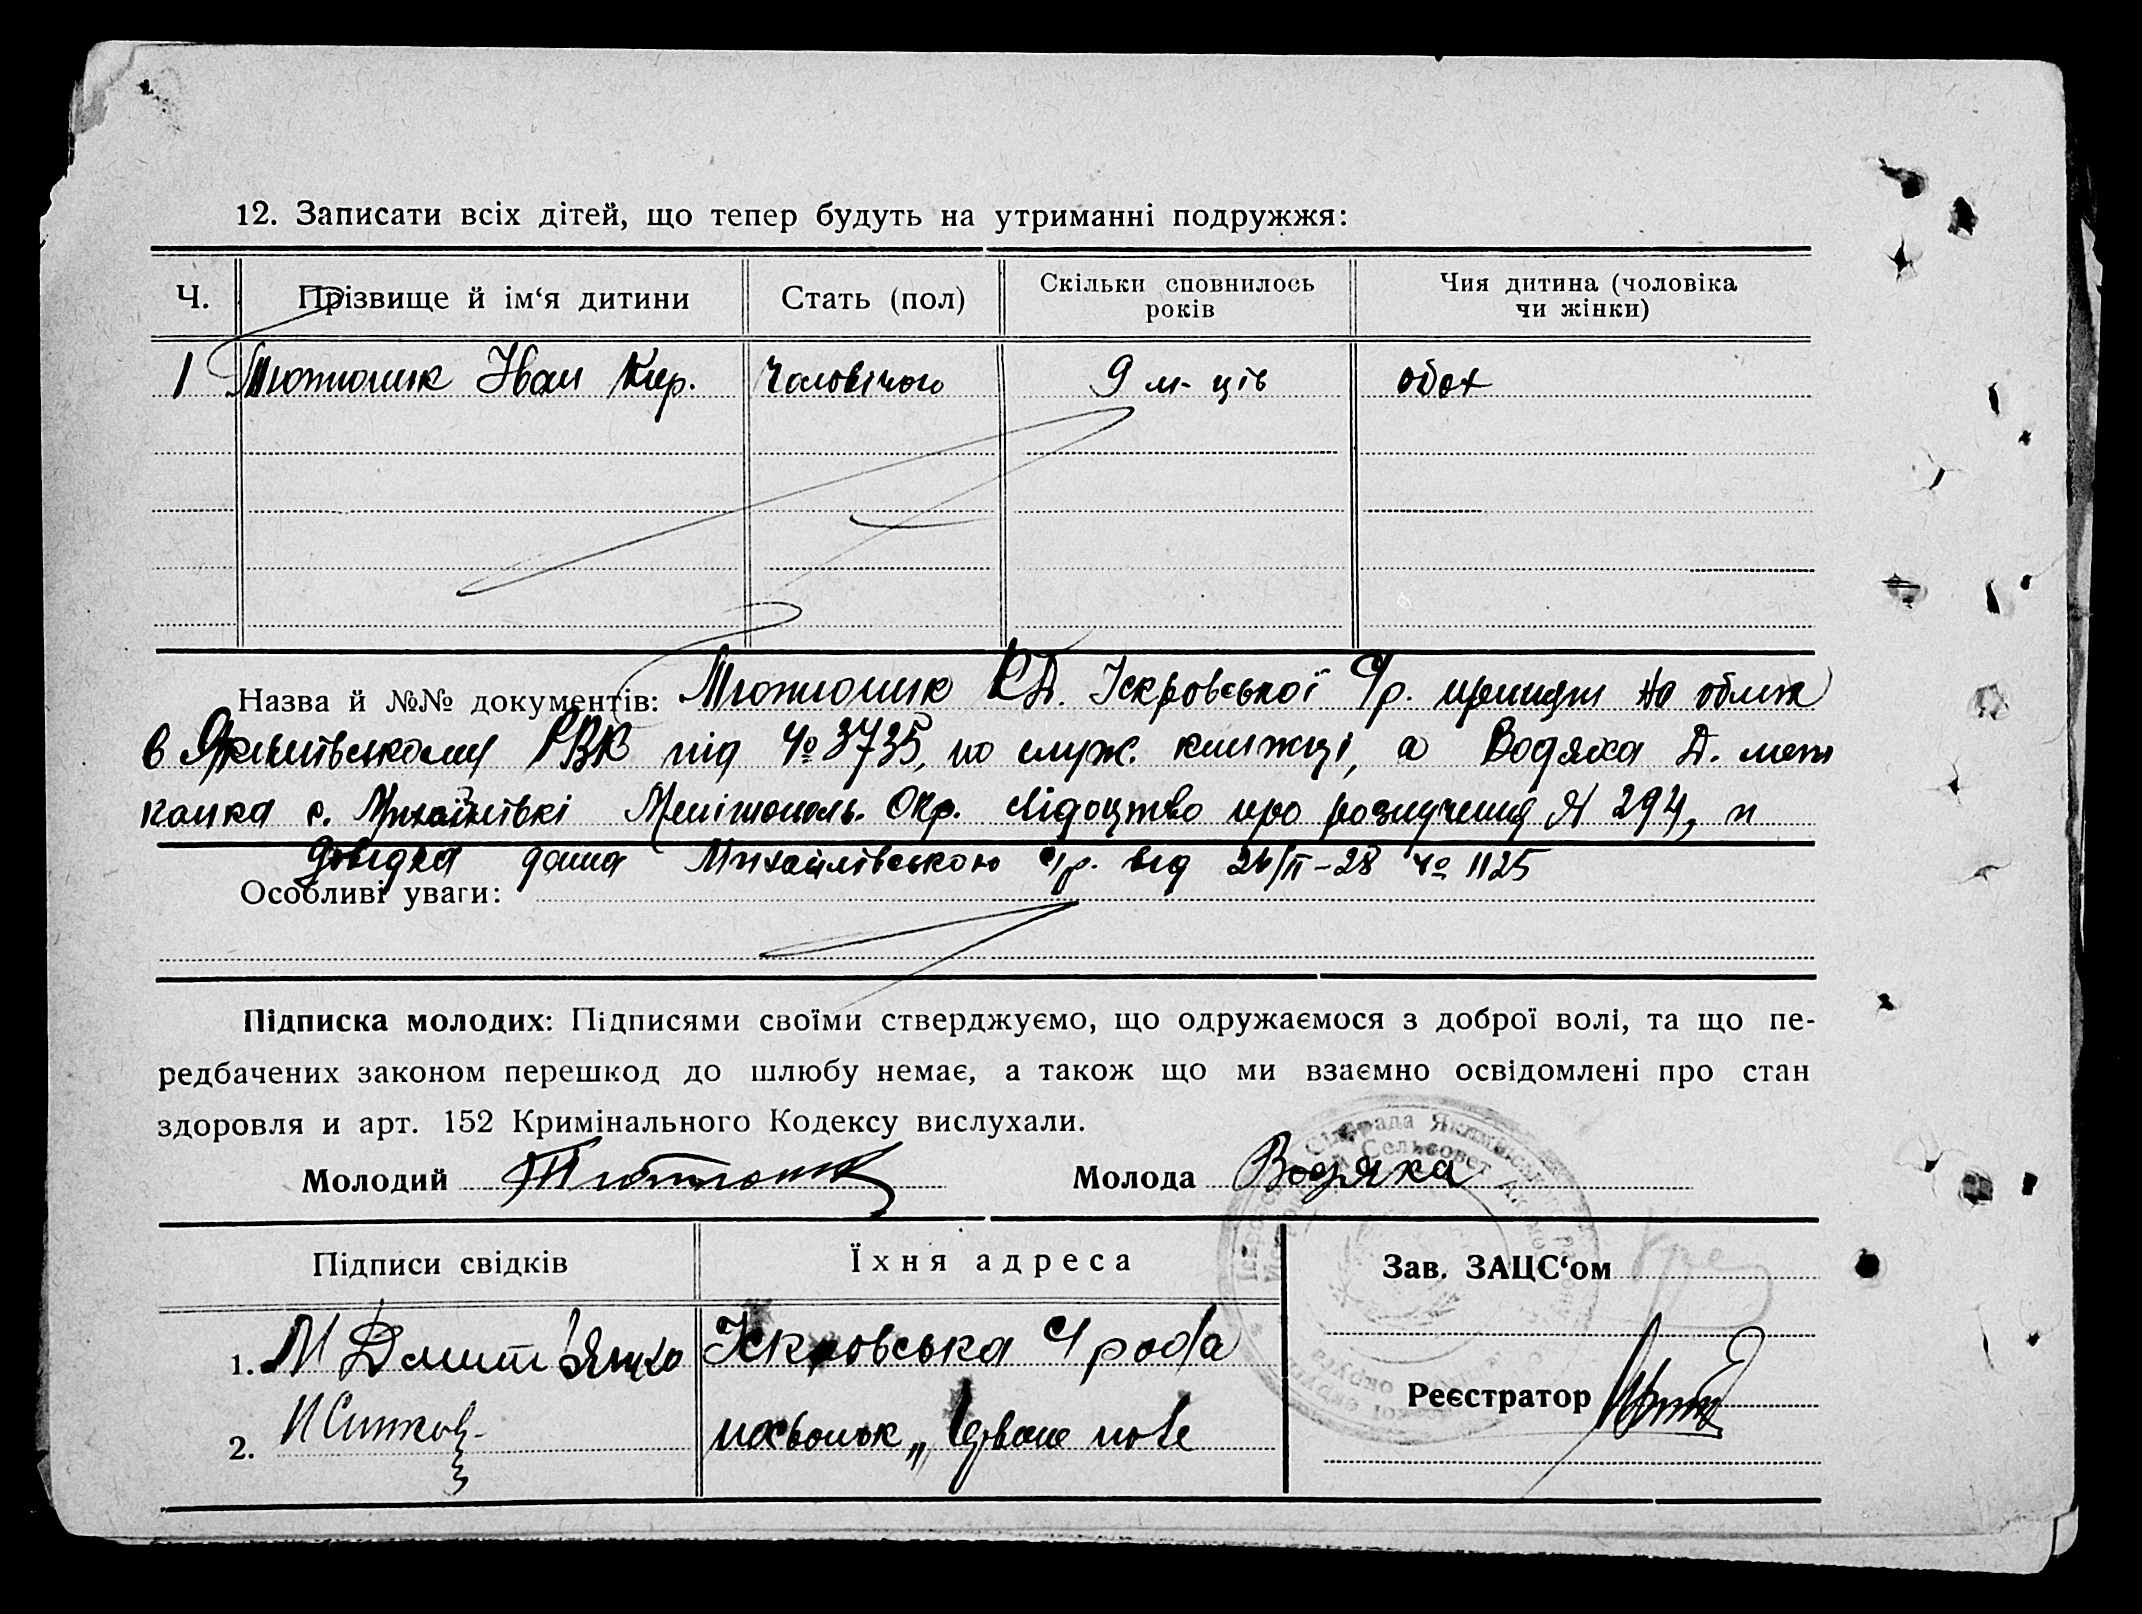 12. Записати всіх дітей, що тепер будуть на утриманні подружжя:
Ч. Прізвище й ім‘я дитини Стать (пол) Скільки сповнилось років Чия дитина (чоловіка чи жінки)
1 Тютюник Іван Кир. Чоловічого 9 м-ців обох
Назва й №№ документів: Тютюник К.Д. Іскровської С/р. на облік
в Якимівському РВК під № 3735, по служ. книжці, а Водяха Д. меш
канка с. Михайлівкі Мелітополь. Окр. свідоцтво про розлучення № 294, и
довідка дана Михайлівською С/р. від 26/II-28 № 1125
Особливі уваги:
Підписка молодих: Підписями своїми стверджуємо, що одружаємося з доброї волі, та що пе-
редбачених законом перешкод до шлюбу немає, а також що ми взаємно освідомлені про стан
здоровля и арт. 152 Кримінального Кодексу вислухали.
Молодий Тютюник Молода Водяха
Підписи свідків Їхня адреса Зав. ЗАЦС‘ом
1. Іскровська С/рада
Реєстратор
2.